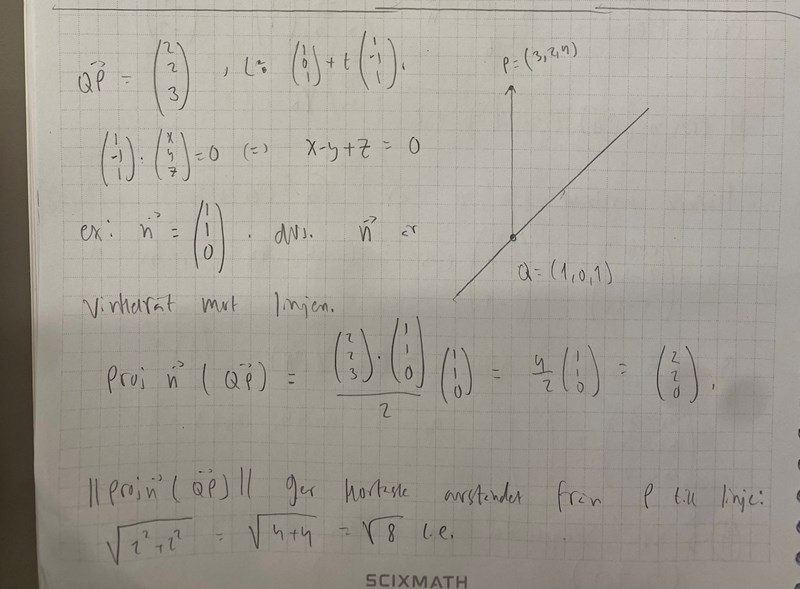 QP⃗ = (2 2 3) , L: (1 0 1) + t (1 -1 1).
P = (3,2,4)
(1 -1 1) · (x y z) = 0 (=) x-y+z = 0
ex: n⃗ = (1 1 0) . dvs. n⃗ är
Q = (1,0,1)
vinkelrät mot linjen.
Proj n⃗ (QP⃗) = (2 2 3) · (1 1 0) / 2 (1 1 0) = 4/2 (1 1 0) = (2 2 0).
||Proj n⃗ (QP⃗)|| ger kortaste avståndet från P till linje:
√2²+2² = √4+4 = √8 l.e.
SCIXMATH